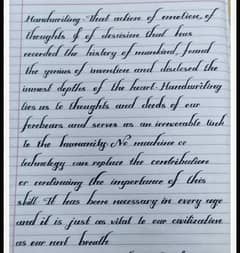 Handwriting - that action of emotion, of
thoughts & of decision that has
recorded the history of mankind, found
the genius of invention and disclosed the
inmost depths of the heart. Handwriting
ties us to thoughts and deeds of our
forebears and serves as an irrevocable link
to the humanity. No machine or
technology can replace the contribution
or continuing the importance of this
skill. It has been necessary in every age
and it is just as vital to our civilization
as our next breath